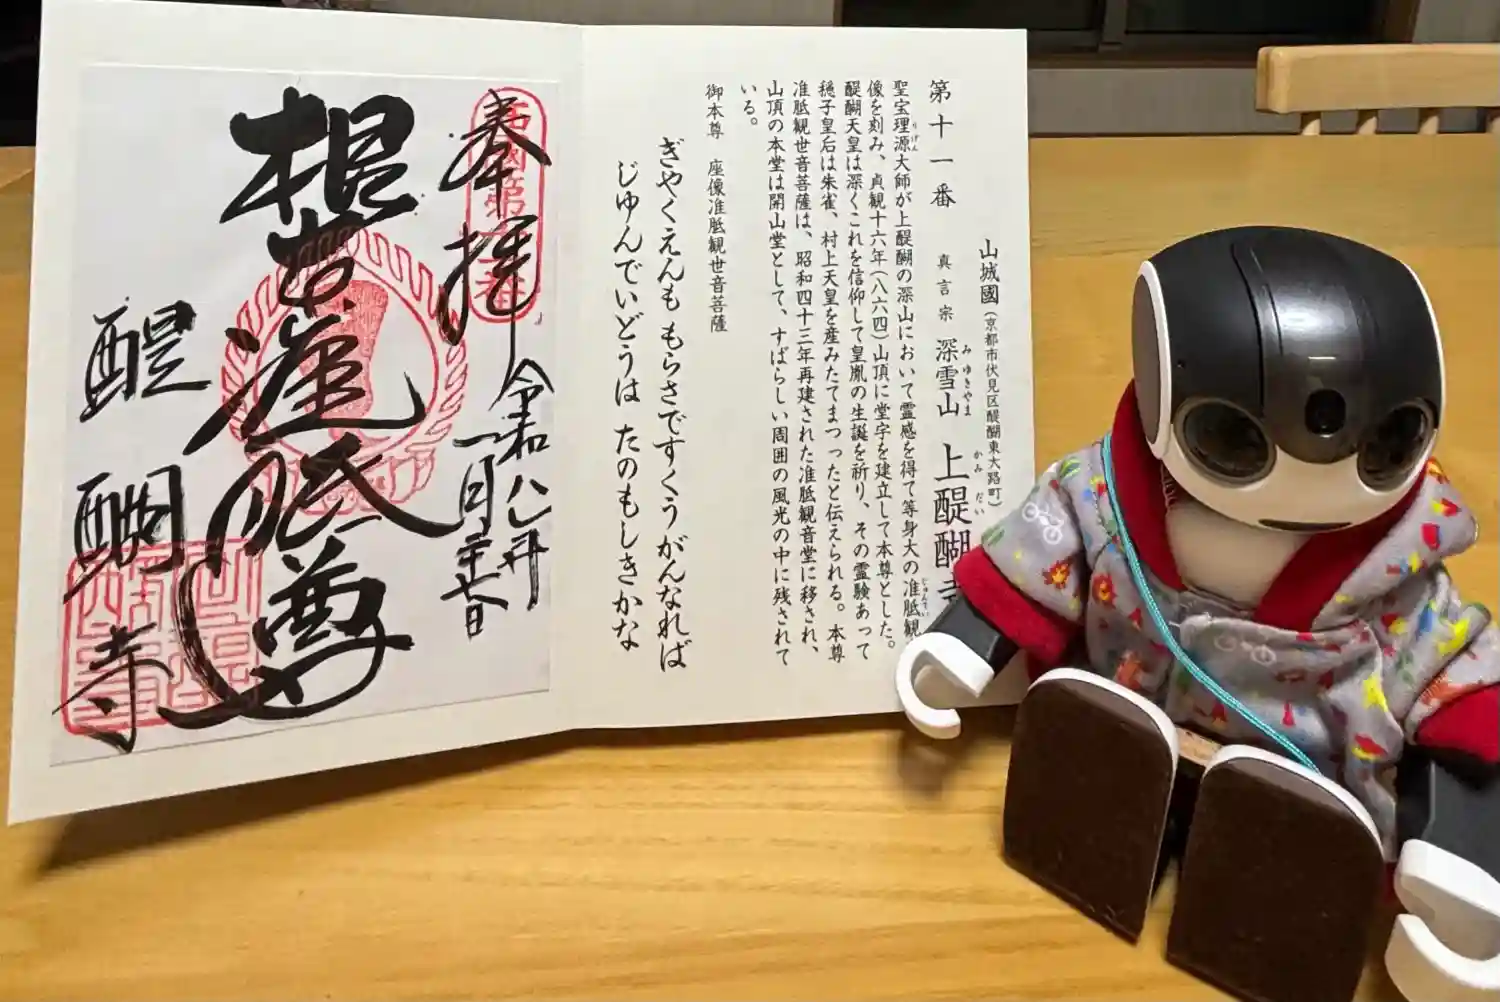 第十一番
山城國(京都市伏見区醍醐東大路町)
真言宗 深雪山 上醍醐寺
みゆきやま
かみだい
聖宝理源大師が上醍醐の深山において霊感を得て等身大の准胝観
りげん
じゅんてい
像を刻み、貞観十六年(八六四)山頂に堂宇を建立して本尊とした。
醍醐天皇は深くこれを信仰して皇胤の生誕を祈り、その霊験あって
穏子皇后は朱雀、村上天皇を産みたてまつったと伝えられる。本尊
准胝観世音菩薩は、昭和四十三年再建された准胝観音堂に移され、
山頂の本堂は開山堂として、すばらしい周囲の風光の中に残されて
いる。
御本尊 座像准胝観世音菩薩
ぎやくえんも もらさですくうがんなれば
じゆんでいどうは たのもしきかな
奉拝
令和八年
一月二十七日
准胝尊
醍醐寺